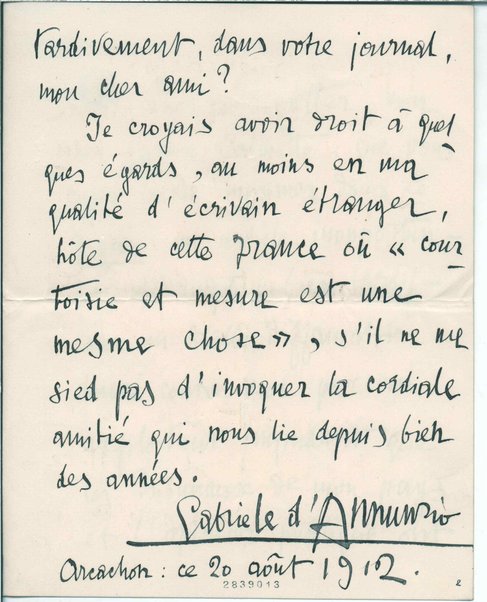 tardivement, dans votre journal,
mon cher ami?
Je croyais avoir droit à quel-
ques égards, au moins en ma
qualité d'écrivain étranger,
hôte de cette France où « cour-
toisie et mesure est une
mesme chose », s'il ne me
sied pas d'invoquer la cordiale
amitié qui nous lie depuis bien
des années.
Gabriele d'Annunzio
Arcachon: ce 20 août 1912.
2839013
2